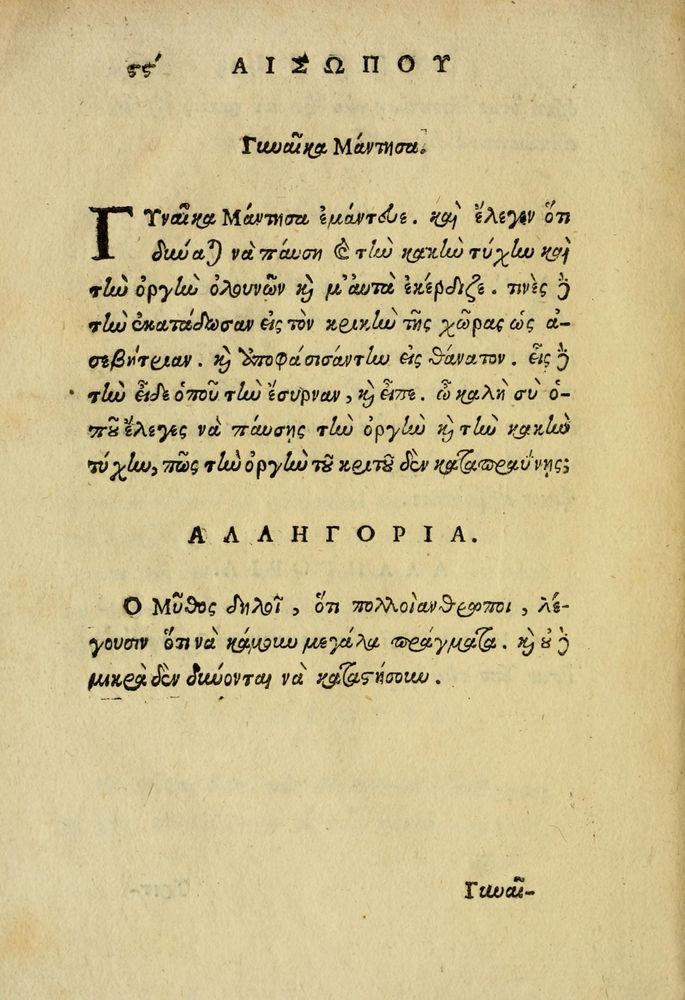 ϛϛʹ ΑΙΣΩΠΟΥ
Γυναῖκα Μάντησα.
ΓΥναῖκα Μάντησα ἐμάντευε. καὶ ἔλεγεν ὅτι
δύναται νὰ παύση καὶ τὴν κακὴν τύχην καὶ
τὴν ὀργὴν ὁλουνῶν καὶ μ' αὐτὰ ἐκέρδιζε. τινὲς δὲ
τὴν ἐκατάδωσαν εἰς τὸν κριτὴν τῆς χῶρας ὡς ἀ-
σεβήτριαν. καὶ ὑποφάσισάν την εἰς θάνατον. εἷς δὲ
τὴν εἶδε ὁποῦ τὴν ἔσυρναν, καὶ εἶπε. ὦ καλὴ σὺ ὁ-
ποῦ ἔλεγες νὰ παύσης τὴν ὀργὴν καὶ τὴν κακὴν
τύχην, πῶς τὴν ὀργὴν τοῦ κριτοῦ δὲν καταπραΰνης;
ΑΛΛΗΓΟΡΙΑ.
Ο Μῦθος δηλοῖ, ὅτι πολλοὶ ἄνθρωποι, λέ-
γουσιν ὅτι νὰ κάμουν μεγάλα πράγματα. καὶ οὐδὲ
μικρὰ δὲν δύνονται νὰ καταστήσουν.
Γυναῖ-